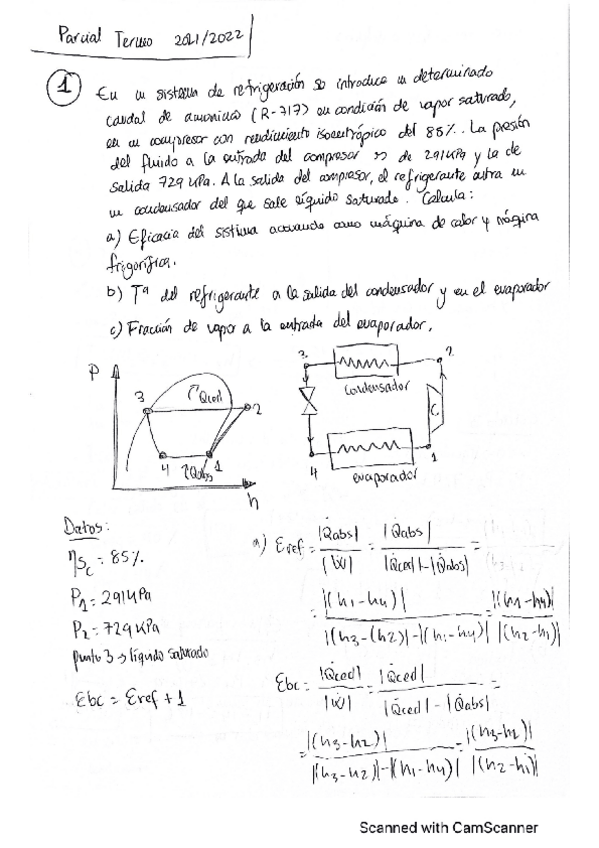 Parcial Termo 2021/2022
1 En un sistema de refrigeración se introduce un determinado
caudal de amoniaco (R-717) en condición de vapor saturado,
en un compresor con rendimiento isoentrópico del 85%. La presión
del fluido a la entrada del compresor es de 291 kPa y la de
salida 729 kPa. A la salida del compresor, el refrigerante entra en
un condensador del que sale líquido saturado. Calcula:
a) Eficacia del sistema actuando como máquina de calor y máquina
frigorífica.
b) Tª del refrigerante a la salida del condensador y en el evaporador
c) Fracción de vapor a la entrada del evaporador.
P
3
Qced
2
4
Qabs
1
h
3
2
condensador
C
4
evaporador
1
Datos:
ηSc = 85%
P1 = 291 kPa
P2 = 729 kPa
punto 3 → líquido saturado
Ebc = Eref + 1
a) Eref = |Qabs| / |Ẇ| = |Q̇abs| / |Q̇ced| - |Q̇abs| =
= |(h1-h4)| / |(h3-(h2)| - |(h1-h4)| = |(h1-h4)| / |(h2-h1)|
Ebc = |Q̇ced| / |Ẇ| = |Q̇ced| / |Q̇ced| - |Q̇abs| =
= |(h3-h2)| / |(h3-h2)| - |(h1-h4)| = |(h3-h2)| / |(h2-h1)|
Scanned with CamScanner